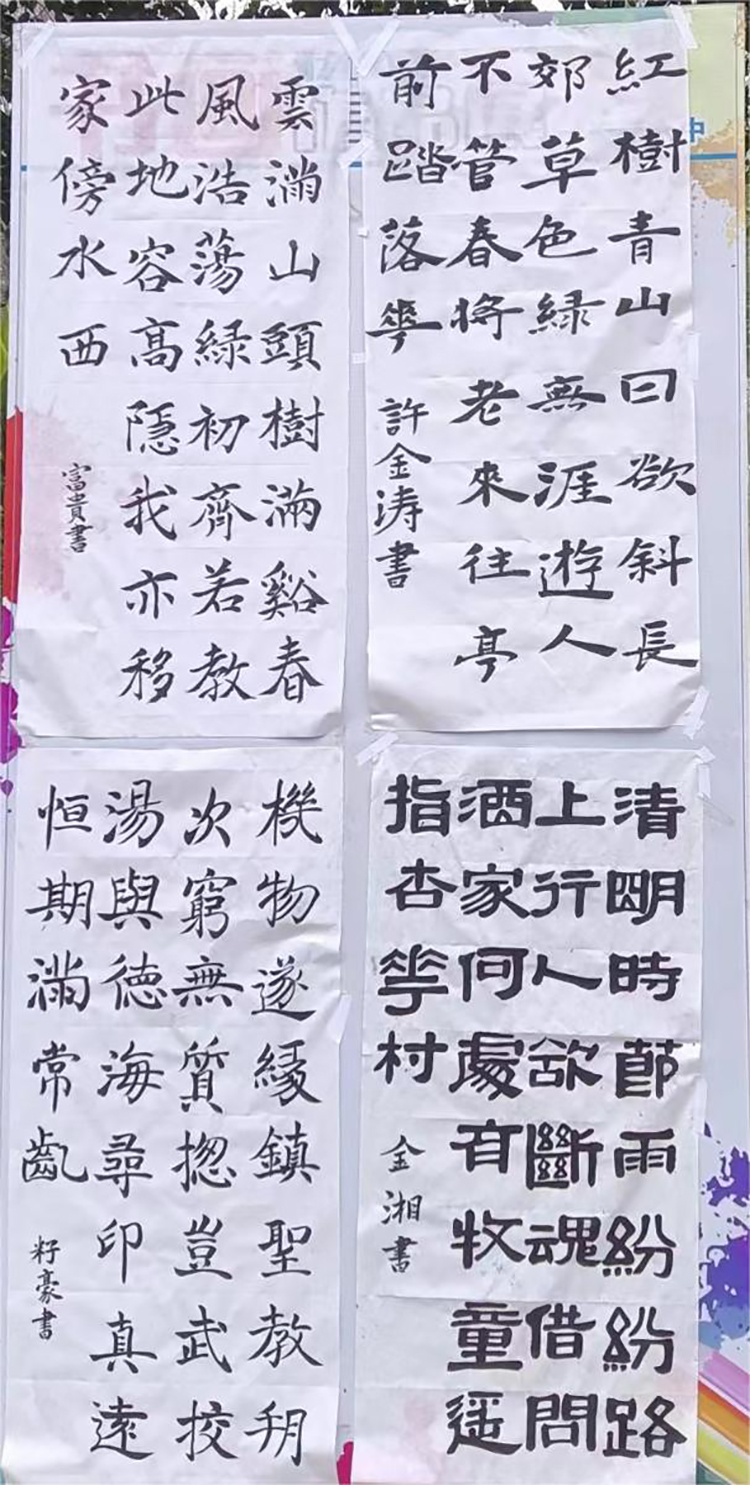 紅樹青山日欲斜長
郊草色綠無涯遊人
不管春將老來往亭
前踏落華
許金涛書
雲滿山頭樹滿谿春
風浩蕩綠初齊若教
此地容高隱我亦移
家傍水西
富貴書
清明時節雨紛紛路
上行人欲斷魂借問
酒家何處有牧童遥
指杏華村
金湘書
機物遂緣鎮聖教朔
次窮無質揔豈武挍
湯與德海尋印真遠
恒期滿常齔
籽豪書